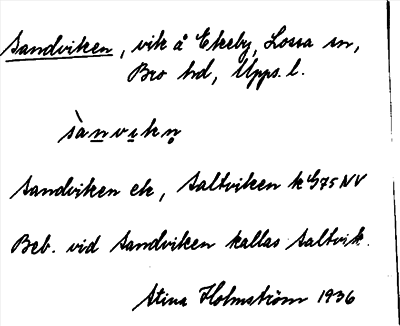 Sandviken, vik å Ekeby, Lossa sn,
Bro hd, Upps. l.
sànvikn̥
Sandviken ek, Saltviken k G75 NV
Beb. vid Sandviken kallas Saltvik.
Stina Holmström 1936